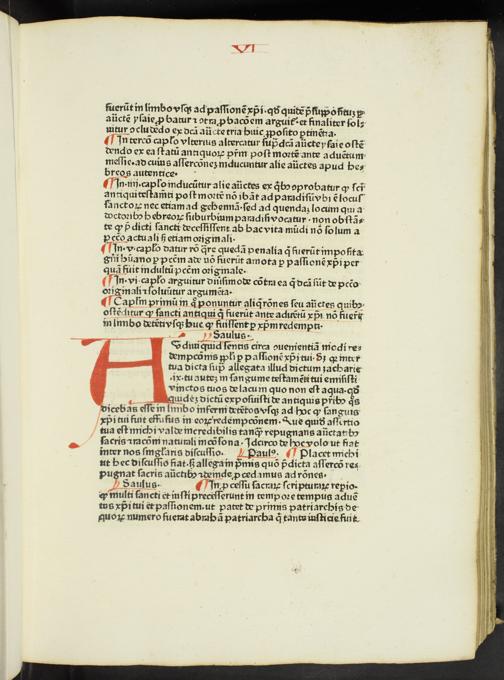 VI
fuerūt in limbo vsq3 ad passionē xp̄i · qd̄ quidē p̄supponitur p
auctē ysaie p batur ⁊ ōtra, p bacōem arguit · et finaliter sol⸗
uitur
¶ In tercō caplo vlterius altercatur sup dcā auctē ysaie oste⸗
dendo ex ea statū antiquoꝝ pr̄m post mortē ante aduentum
messie · ad cuius assercōnē inducuntur alie auctes apud he⸗
breos autentice ·
¶ In · iiii · caplo inducūtur alie auctes ex q̄bus probatur q̄ scī
antiqui testamēti post mortē nō ibāt ad paradisū vbi ē locus
sanctoꝝ nec etiam ad gehennā · sed ad quendā locum qui a
doctoribus hebreoꝝ suburbium paradisi vocatur · non obstā⸗
te q̄ p̄dicti sancti decessissent ab hac vita mūdi nō solum a
pctō actuali sed etiam originali ·
¶ In · v · caplo datur rō quedam penalia q̄ fuerūt imposita
gn̄i hūano p pctm̄ ate uō fuerūt amota p passionē xp̄i per
quā fuit indultū pctm̄ originale ·
¶ In · vi · caplo arguitur diuisimode cōtra ea q̄ dcā sūt de pctō
originali ⁊ soluūtur argumēta ·
¶ Caplm primū in q̄ ponuntur aliq̄ rōnes seu auctes quibus
ostēditur q̄ sancti antiqui q̄ fuerūt ante aduētū xp̄i nō fuerūt
in limbo detēti vsq3 huc q̄ fuissent p xp̄m redempti ·
Saulus ·
AUdiui quid sentis circa ouenientiā modi re⸗
dempcōnis ppl̄i p passionē xp̄i tui · Sed q̄ inter
tua dicta sup̄ allegata illud dictum zacharie
· ix · tu autem in sanguine testamēti tui emisisti
vinctos tuos de lacum quo non est aqua · qd̄
quidē dictū exposuisti de antiquis pr̄ibus q̄s
dicebas esse in limbo inferni detētos vsq3 ad hoc q̄ sanguis
xp̄i tui fuit effusus in eoꝝ redempcōnem · Que quidē assertio
tua est michi valde incredibilis tanq̄ repugnans auctoritatibus
sacris ⁊ racōni naturali incōsona · Idcirco de hoc volo ut fiat
inter nos singularis discussio · Paulus · ¶ Placet michi
ut hec discussio fiat · sed allega in primis quo p̄dicta assercō re⸗
pugnat sacris auctibus ⁊ deinde p cedamus ad rōnes ·
Saulus · ¶ In p cessu sacraꝝ scripturaꝝ repio ·
q̄ multi sancti et iusti precesserunt in tempore tempus aduē
tus xp̄i tui et passionem · ut patet de primis patriarchis de
quoꝝ numero fuerat abrahā patriarcha q̄ tante iusticie fuit ·